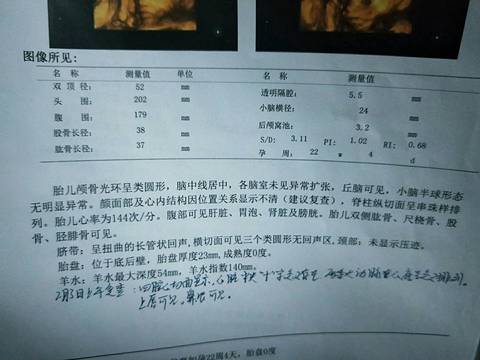 图像所见:
名 称 测量值 单位 名 称 测量值
双 顶 径: 52 mm 透明隔腔: 5.5 mm
头 围: 202 mm 小脑横径: 24 mm
腹 围: 179 mm 后颅窝池: 3.2 mm
股骨长径: 38 mm S/D: 3.11 PI: 1.02 RI: 0.68
肱骨长径: 37 mm 孕 周: 22 w 4 d
胎儿颅骨光环呈类圆形,脑中线居中,各脑室未见异常扩张,丘脑可见,小脑半球形态
无明显异常。颜面部及心内结构因位置关系显示不清(建议复查),脊柱纵切面呈串珠样排
列。胎儿心率为144次/分。腹部可见肝脏、胃泡、肾脏及膀胱。胎儿双侧肱骨、尺桡骨、股
骨、胫腓骨可见。
脐带:呈扭曲的长管状回声,横切面可见三个类圆形无回声区,颈部:未显示压迹。
胎盘:位于底后壁,胎盘厚度23mm,成熟度0度。
羊水:羊水最大深度54mm,羊水指数140mm。
上唇可见,鼻形可见。
22周4天,胎盘0度